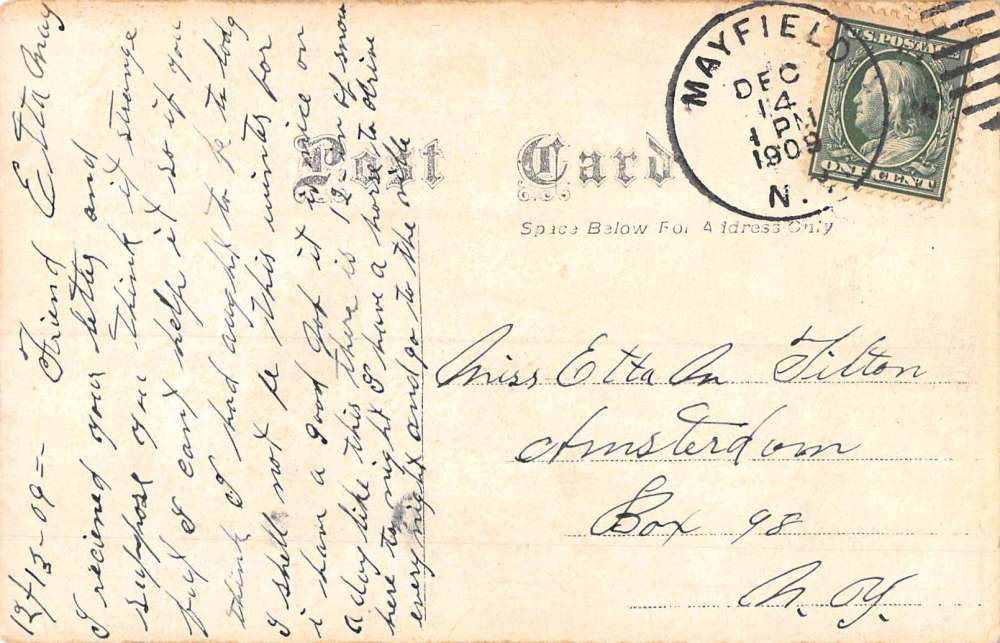 12-13-09--
Friend Etta May
I recieved your letter and
suppose you think it strange
but I cant help it so if you
think I had aught to be to body
I shall not be this winter for
i have a good Job it is ice on
a day like this there is 12-in of snow
here to night I have a horse to drive
every night and go to the ville
Post Card
Space Below For Address Only
MAYFIELD
DEC
14
1 PM
1909
N.Y.
U.S. POSTAGE
ONE CENT
Miss Etta M Tilton
Amsterdam
Box 98
N. Y.